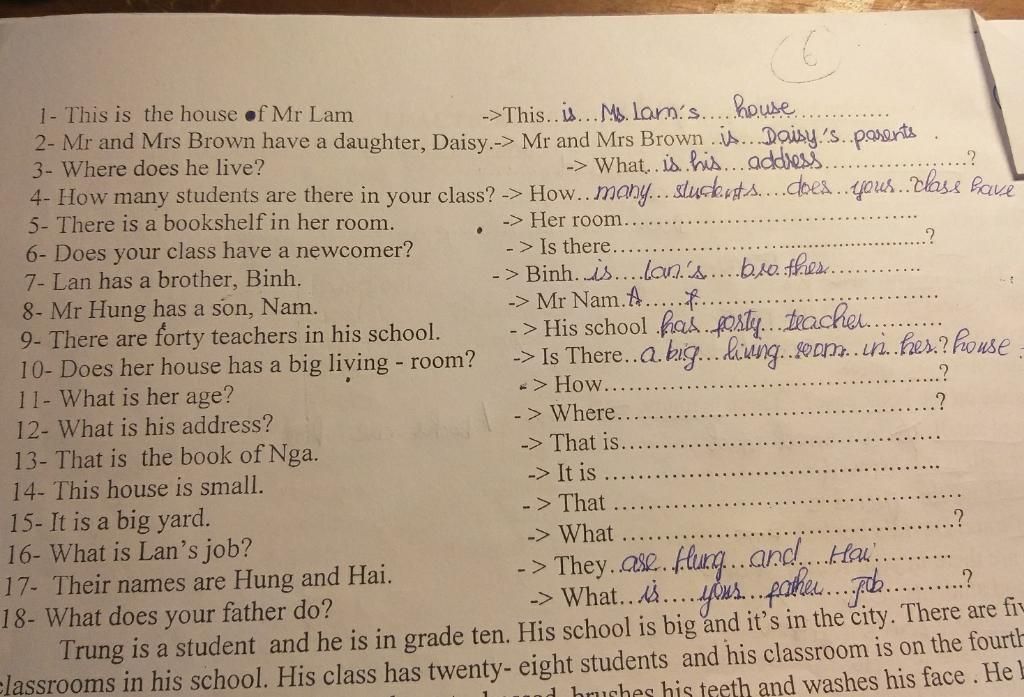 6
1- This is the house of Mr Lam ->This..is...Ms. Lam's....house..............
2- Mr and Mrs Brown have a daughter, Daisy.-> Mr and Mrs Brown ..is...Daisy's..parents .
3- Where does he live? -> What..is his...address........................?
4- How many students are there in your class? -> How...many...students....does...your..?class have
5- There is a bookshelf in her room. -> Her room.................................................
6- Does your class have a newcomer? - > Is there....................................................?
7- Lan has a brother, Binh. - > Binh..is....lan's....brother..............
8- Mr Hung has a son, Nam. -> Mr Nam.A.....f.....................................
9- There are forty teachers in his school. - > His school .has..forty...teacher............
10- Does her house has a big living - room? -> Is There..a.big...living..room..in..her.?house
11- What is her age? - > How.....................................................?
12- What is his address? - > Where...................................................?
13- That is the book of Nga. -> That is.....................................................
14- This house is small. -> It is .....................................................
15- It is a big yard. - > That .....................................................
16- What is Lan's job? -> What .....................................................?
17- Their names are Hung and Hai. - > They..are..Hung...and...Hai...........
18- What does your father do? -> What...is....your...father....job...........?
Trung is a student and he is in grade ten. His school is big and it's in the city. There are
classrooms in his school. His class has twenty- eight students and his classroom is on the fourth
brushes his teeth and washes his face . He